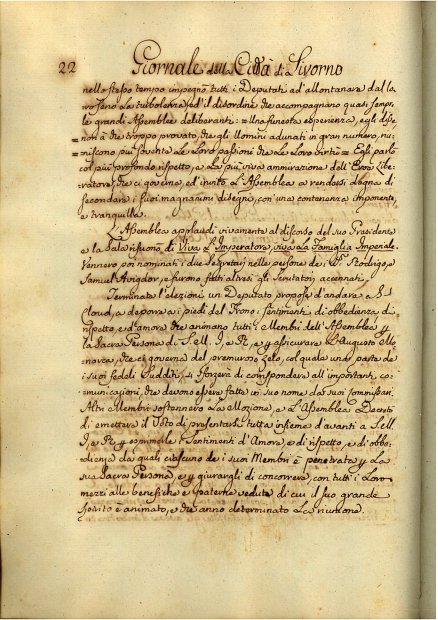 22 Giornale della Città di Livorno
nello stesso tempo impegnò tutti i Deputati ad allontanare dal lo:
ro seno la turbolenza, ed il disordine che accompagnano quasi sempre
le grandi Assemblee deliberanti: = Una funesta esperienza, egli disse
= non à che troppo provato, che gli Uomini adunati in gran numero, riu
= niscono più sovente le loro passioni che le loro virtù = Egli parlò
col più profondo rispetto, e la più viva ammirazione dell'Eroe libe:
ratore, che ci governa, ed invitò l'Assemblea a rendersi degna di
secondare i suoi magnanimi disegni, con una contenenza imponente,
e tranquilla.
L'Assemblea applaudì vivamente al discorso del suo Presidente
e la Sala risuonò di Viva l'Imperatore, viva la Famiglia Imperiale.
Vennero poi nominati i due Segretarj nelle persone de i Rodrigo, e
Samuel Avigdor, e furono fatti altresì gli Scrutatori accennati.
Terminata l'elezioni un Deputato propose d'andare a S.
Cloud, a deporre a i piedi del Trono i sentimenti di obbedienza, di
rispetto, e d'amore che animano tutti i Membri dell'Assemblea p.
la Sacra Persona di S. M. I. e R., e p. assicurare l'Augusto Mo:
narca, che ci governa del premuroso zelo, col quale una parte de
i suoi fedeli Sudditi, si sforzerà di corrispondere all'importanti co:
municazioni, che devono essere fatte in suo nome da suoi Commissari.
Altri Membri sostennero la Mozione, e l'Assemblea Decretò
di emettere il Voto di presentarsi tutta insieme d'avanti a S. M.
I. e R. p. esprimerle i Sentimenti d'Amore, e di rispetto, e di obbe:
dienza da quali ciascuno de i suoi Membri è penetrata p. la
sua Sacra Persona, e p. giurargli di concorrere, con tutti i loro
mezzi alle benefiche e paterne vedute di cui il suo grande
spirito è animato, e che anno determinato la riunione.